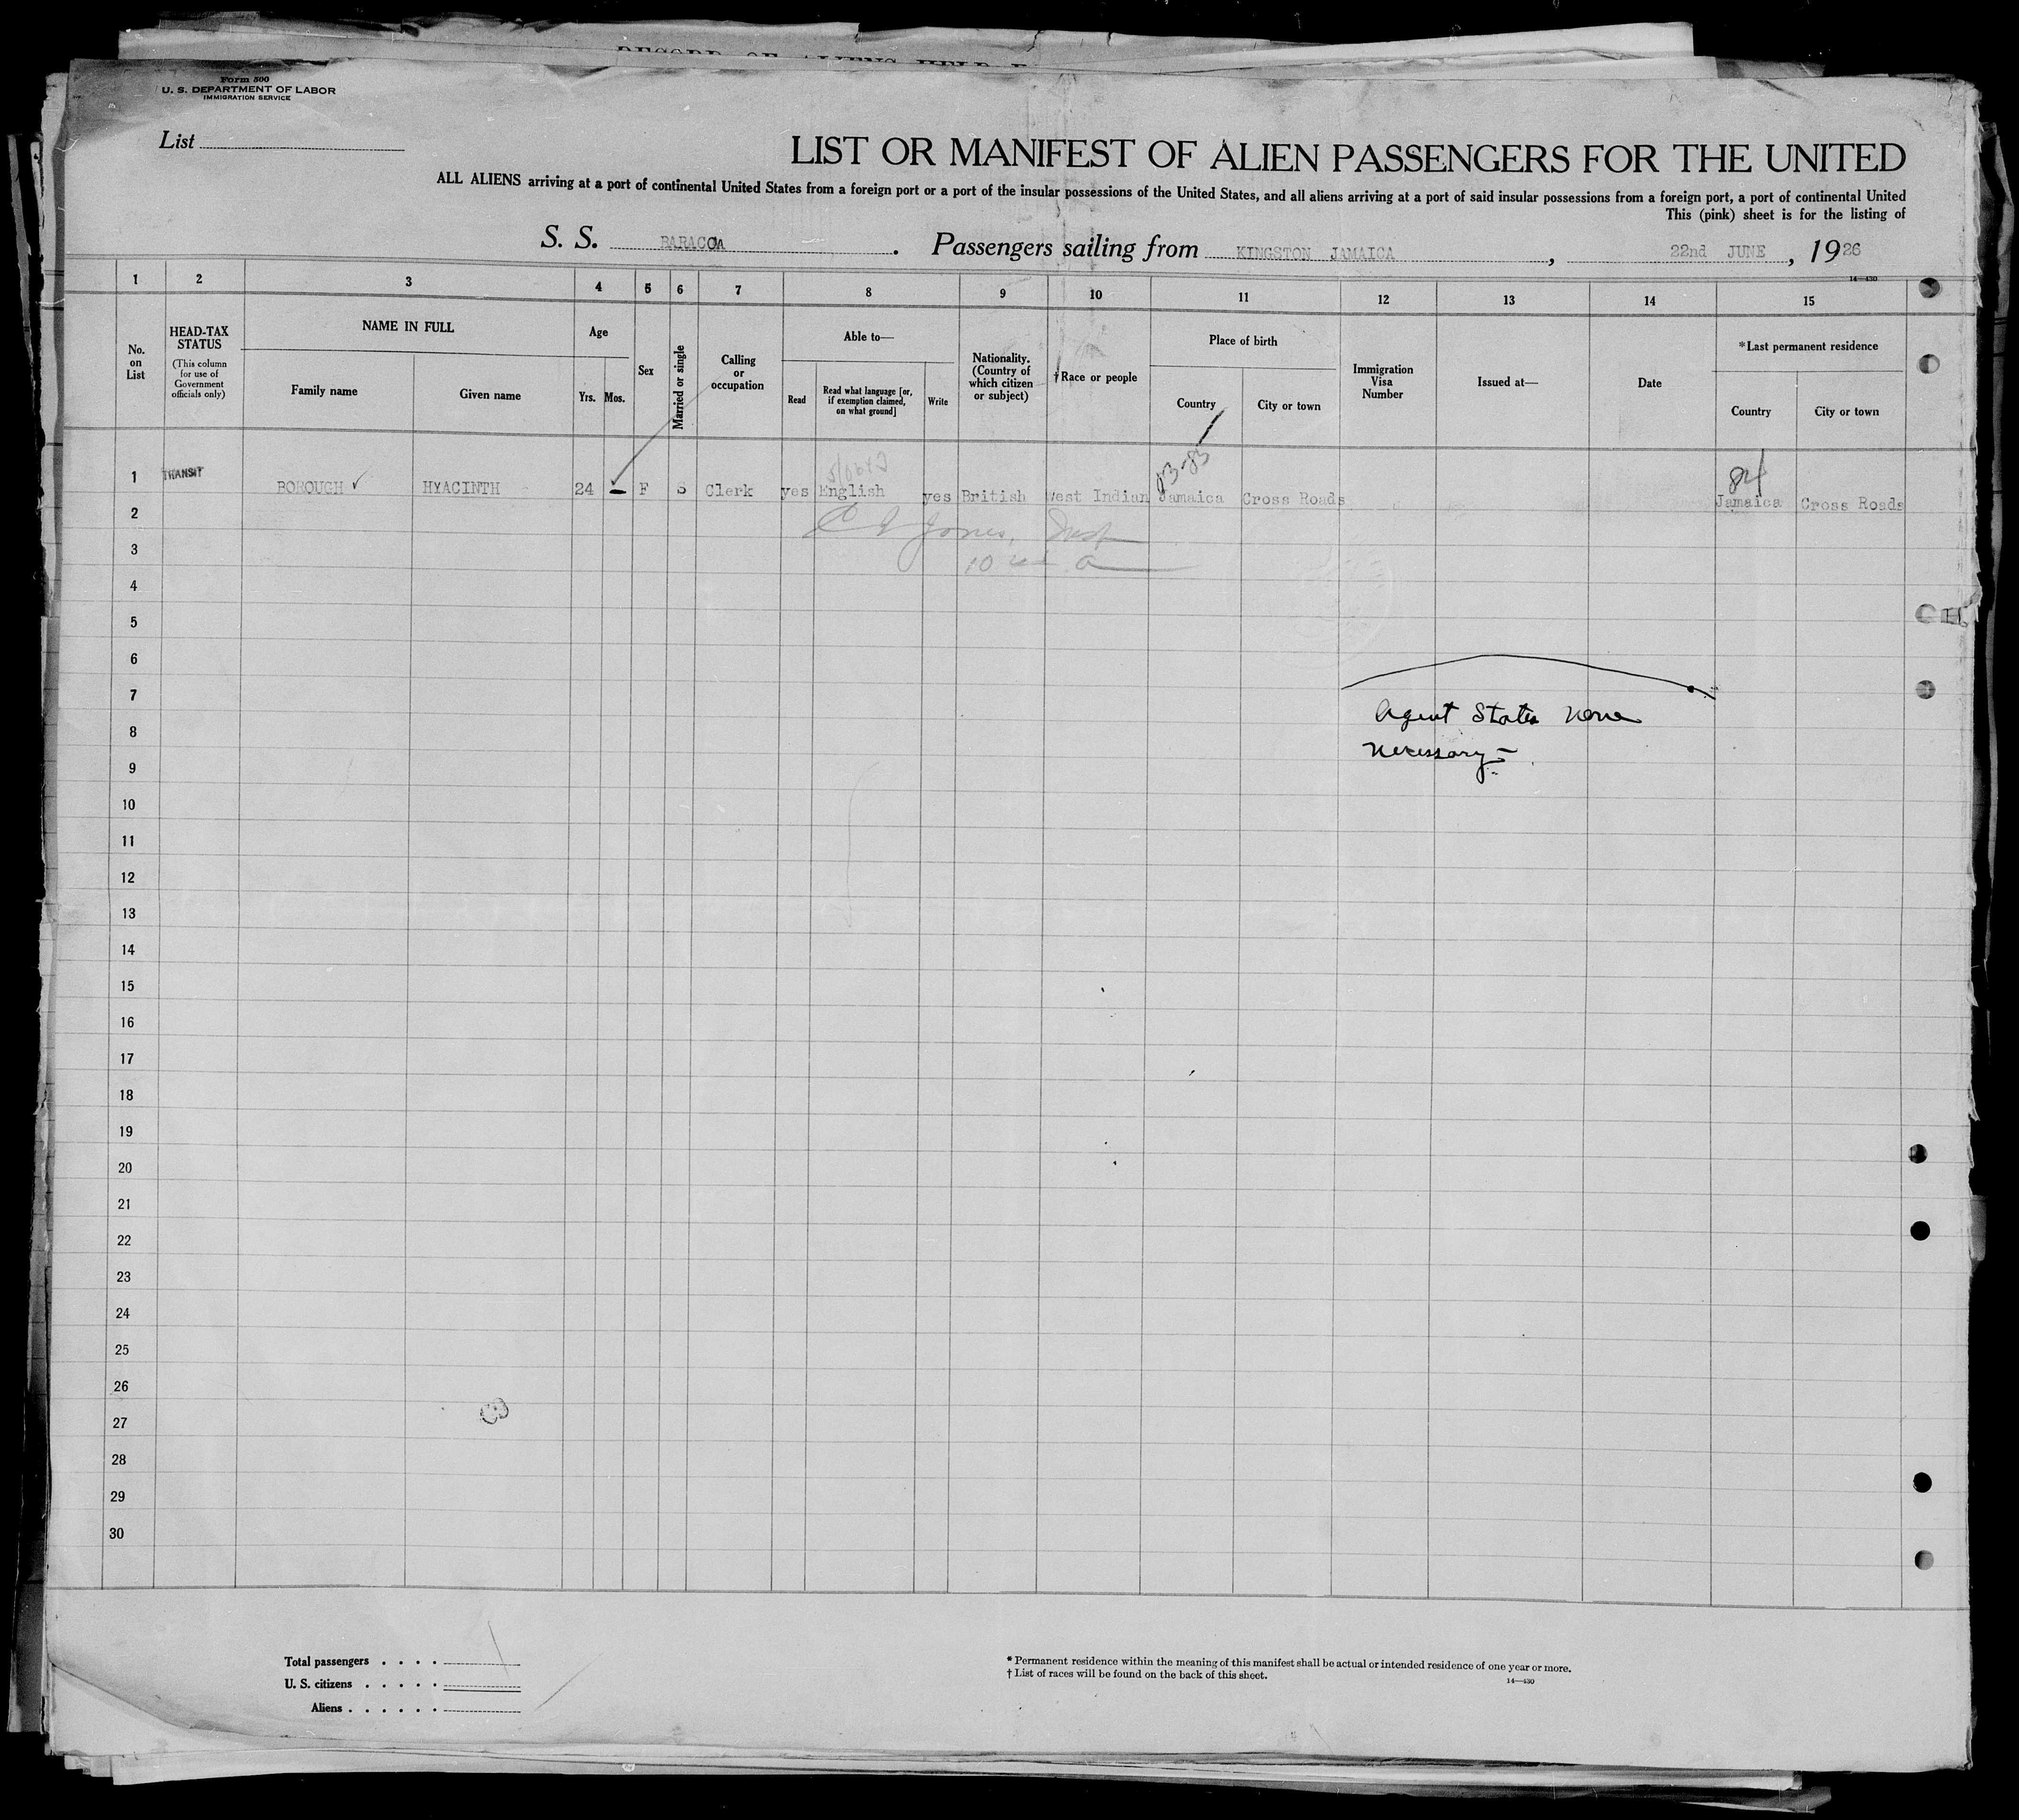 Form 500
U. S. DEPARTMENT OF LABOR
IMMIGRATION SERVICE
List
LIST OR MANIFEST OF ALIEN PASSENGERS FOR THE UNITED
ALL ALIENS arriving at a port of continental United States from a foreign port or a port of the insular possessions of the United States, and all aliens arriving at a port of said insular possessions from a foreign port, a port of continental United
This (pink) sheet is for the listing of
S. S. BARACOA. Passengers sailing from KINGSTON JAMAICA, 22nd JUNE, 1926
14—430
1 2 3 4 5 6 7 8 9 10 11 12 13 14 15
No. on List
HEAD-TAX STATUS
(This column for use of Government officials only)
NAME IN FULL
Family name
Given name
Age
Yrs. Mos.
Sex
Married or single
Calling or occupation
Able to—
Read
Read what language [or, if exemption claimed, on what ground]
Write
Nationality. (Country of which citizen or subject)
†Race or people
Place of birth
Country
City or town
Immigration Visa Number
Issued at—
Date
*Last permanent residence
Country
City or town
83-83
84
1 TRANSIT BOROUGH ✓ HYACINTH 24 – F S Clerk yes English yes British West Indian Jamaica Cross Roads Jamaica Cross Roads
2
C J Jones,
3
10
4
5
6
7
Agent States None
8
necessary –
9
10
11
12
13
14
15
16
17
18
19
20
21
22
23
24
25
26
27
28
29
30
Total passengers . . . . 1
U. S. citizens . . . . .
Aliens . . . . . .
* Permanent residence within the meaning of this manifest shall be actual or intended residence of one year or more.
† List of races will be found on the back of this sheet.
14—430